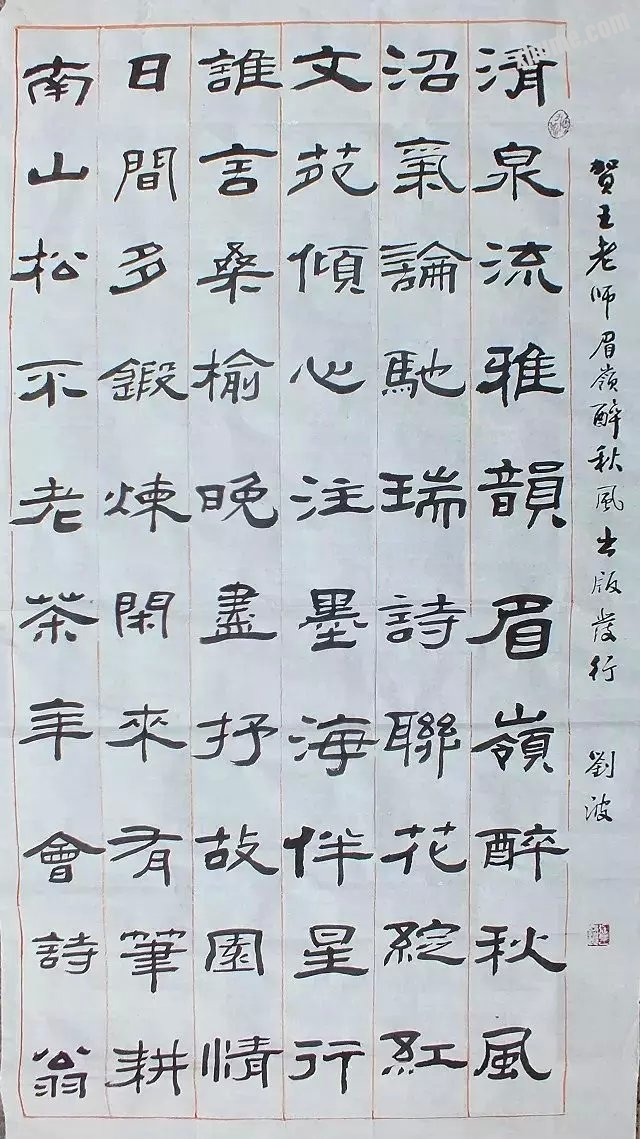 清泉流雅韻眉嶺醉秋風
沼氣論馳瑞詩聯花綻紅
文苑傾心注墨海伴星行
誰言桑榆晚盡抒故園情
日間多鍛煉閑來有筆耕
南山松不老茶年會詩翁
賀王老师眉嶺醉秋風出版發行
劉波